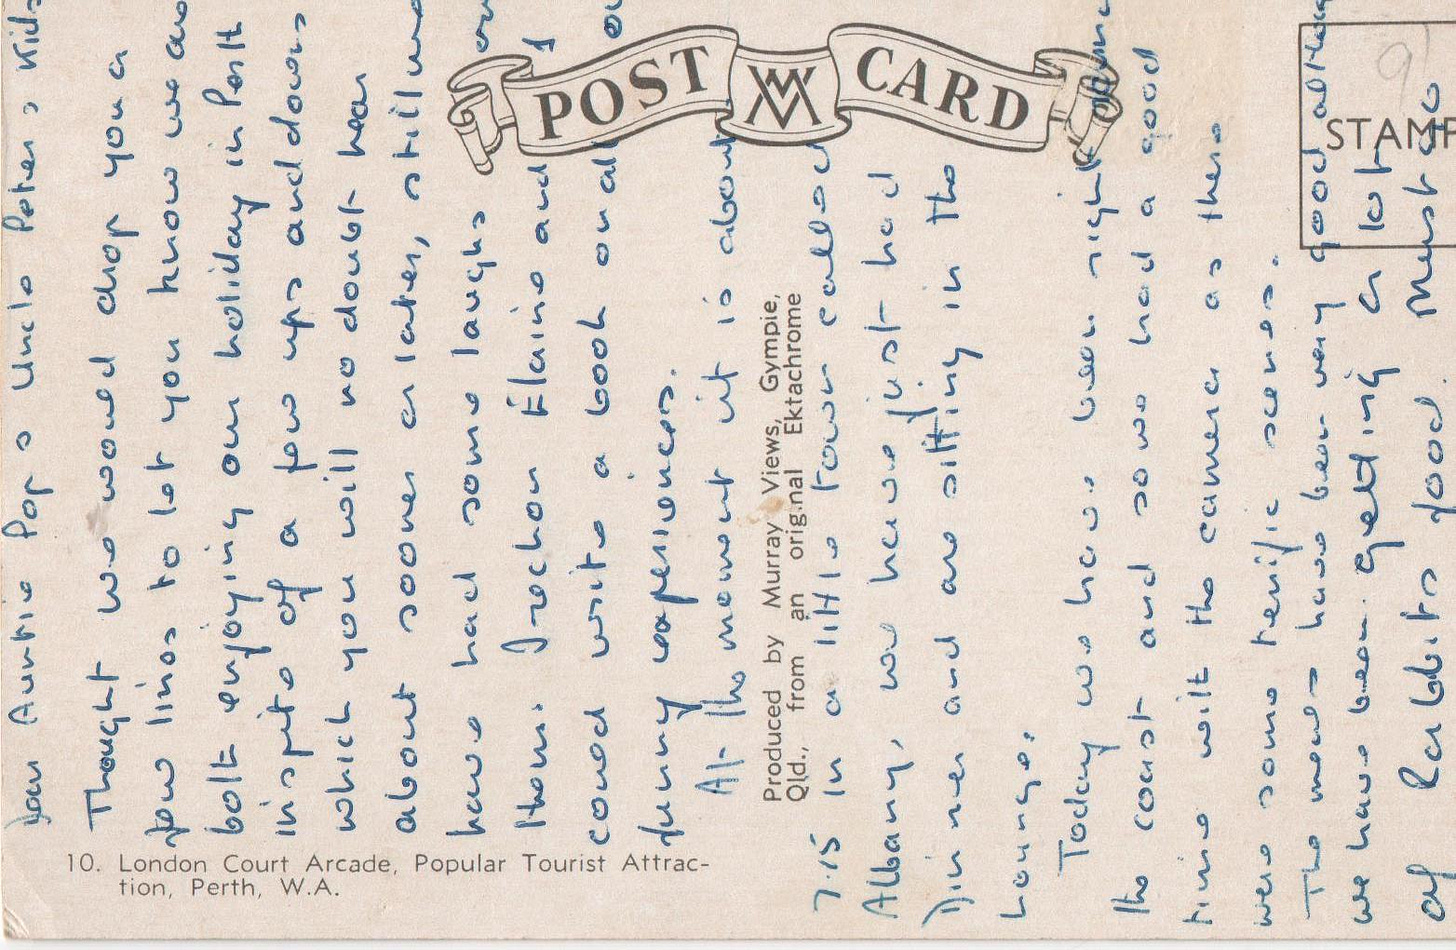 POST CARD
STAMP
10. London Court Arcade, Popular Tourist Attrac-
tion, Perth, W.A.
Produced by Murray Views, Gympie,
Qld., from an original Ektachrome
Dear Auntie Pop s Uncle Peter s Kids
Thought we woud drop you a
few lines to let you know we are
both enjoying our holiday in Perth
inspite of a few ups and downs
which you will no doubt hear
about sooner or later, still we
have had some laughs
them. I rechon Elaine and I
coued write a book on all
funny experiences.
At the moment it is about
7.15 In a little town called
Albany, we have just had
Dinner and are sitting in the
Lounge.
Today we have been right
the coast and some had a good
time with the camera as there
were some terific scenes.
The meals have been very good
we have been getting a lot
of Rabbits food. Must be